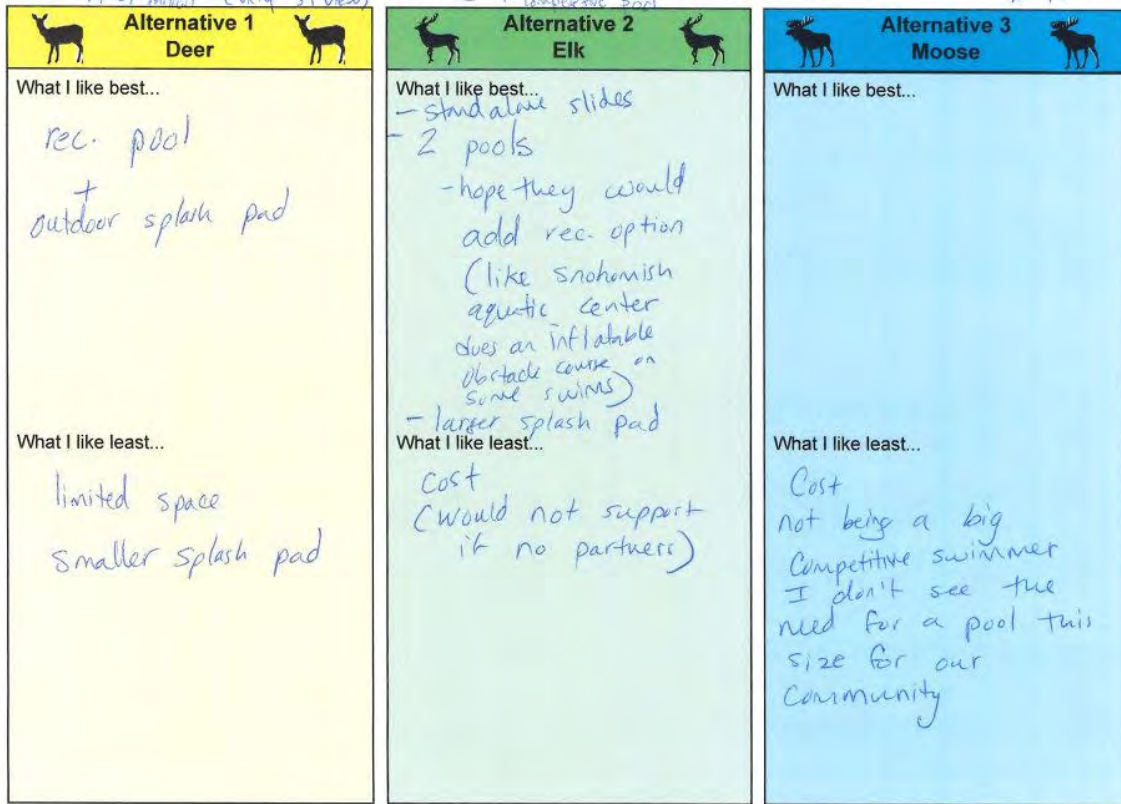 competitive pool
Alternative 1
Deer
What I like best...
rec. pool
+
outdoor splash pad
What I like least...
limited space
smaller splash pad
Alternative 2
Elk
What I like best...
- standalone slides
- 2 pools
- hope they would
add rec. option
(like Snohomish
aquatic center
does an inflatable
obstacle course on
some swims)
- larger splash pad
What I like least...
Cost
(would not support
if no partners)
Alternative 3
Moose
What I like best...
What I like least...
Cost
not being a big
Competitive swimmer
I don't see the
need for a pool this
size for our
Community